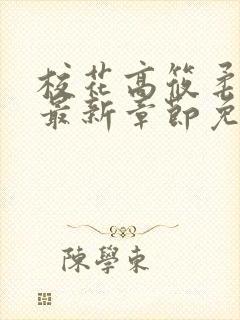 校花高筱柔
最新章節免
陳學東